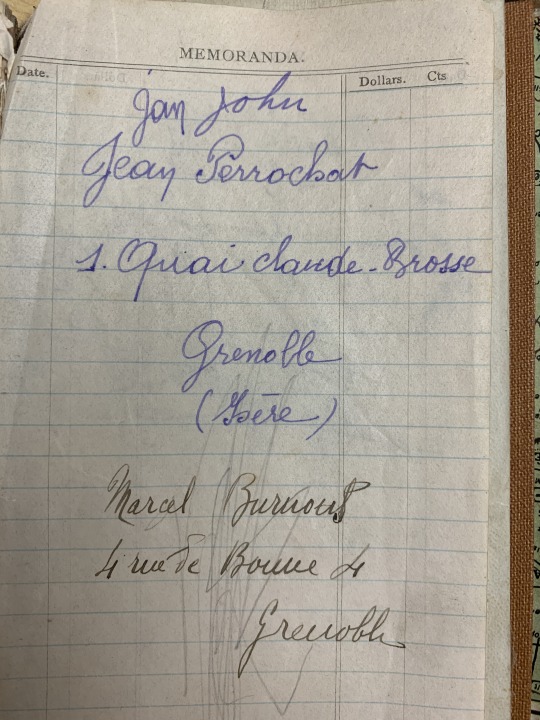 MEMORANDA.
Date. Dollars. Cts
Jan John
Jean Perrochat
1. Quai claude-Brosse
Grenoble
(Isère)
Marcel
4 rue de Bonne 4
Grenoble